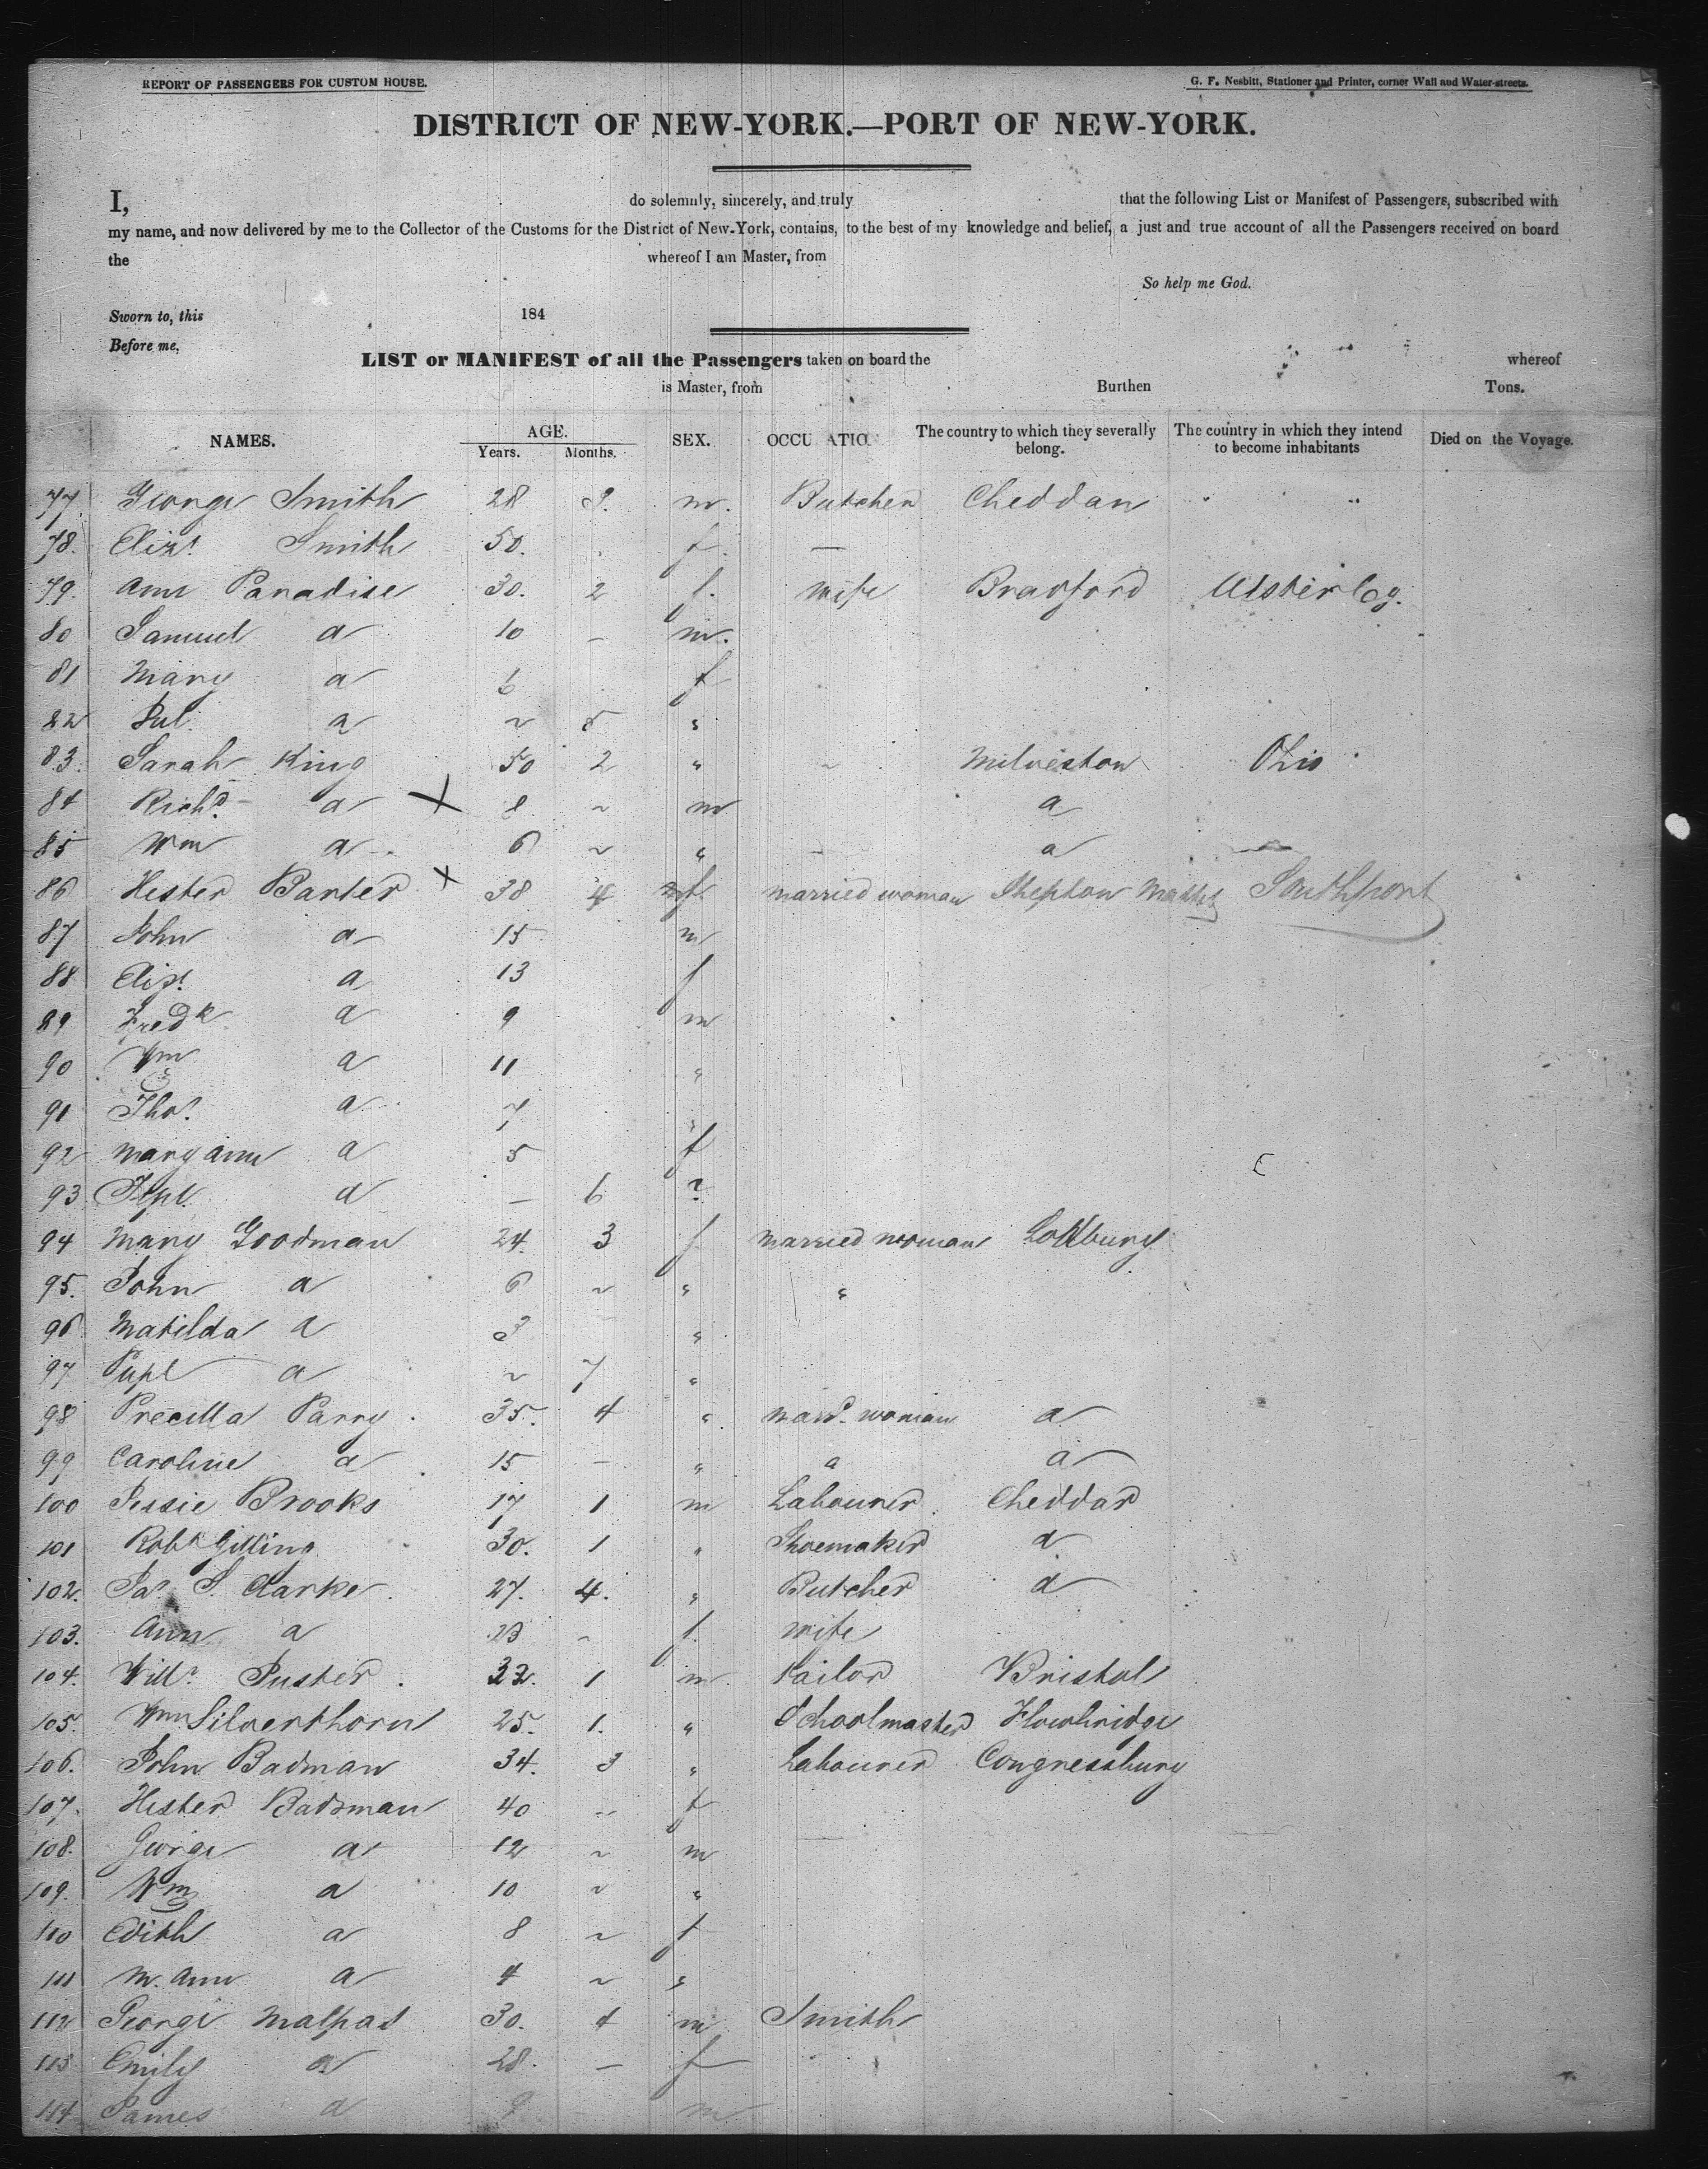 REPORT OF PASSENGERS FOR CUSTOM HOUSE. G. F. Nesbitt, Stationer and Printer, corner Wall and Water-streets.
DISTRICT OF NEW-YORK.—PORT OF NEW-YORK.
I, do solemnly, sincerely, and truly that the following List or Manifest of Passengers, subscribed with
my name, and now delivered by me to the Collector of the Customs for the District of New-York, contains, to the best of my knowledge and belief, a just and true account of all the Passengers received on board
the whereof I am Master, from
So help me God.
Sworn to, this 184
Before me,
LIST or MANIFEST of all the Passengers taken on board the whereof
is Master, from Burthen Tons.
NAMES. AGE. Years. Months. SEX. OCCU ATIO The country to which they severally belong. The country in which they intend to become inhabitants Died on the Voyage.
77. George Smith 28 m. Butcher Cheddar
78. Elizt Smith 50. f. —
79. Ann Paradise 30. 2 f. wife Bradford Ulster Co.
80 Samuel a 10 – m.
81 Mary a 6 f
82 a ~ 5 "
83. Sarah King 50 2 " ~ Ohio
84 Richd. a X 8 ~ m a
85 Wm a 6 ~ " – a
86 Hester Banter X 38 4 f married woman Shepton Southport
87 John a 15 m
88 Elizt a 13 f
89 Fredk a 9 m
90 Wm a 11 "
91 Thos. a 7 "
92 Mary Ann a 5 f
93 a – 6 ?
94 Mary Goodman 24. 3 f married woman
95. John a 6 ~ " "
96 Matilda a 3 "
97 a ~ 7 "
98 Precilla Parry. 35. 4 " mard. woman a
99 Caroline a 15 – " a a
100 Jessie Brooks 17 1 m Labourer Cheddar
101 Robt Gilling 30. 1 " Shoemaker a
102. Jas. S. Clarke. 27. 4. " Butcher a
103. Ann a 23 – f. wife
104. Willm Puster. 32. 1 m. Tailor Bristol
105. Wm Silverthorn 25. 1. " Schoolmaster
106. John Badman 34. 3 " Labourer Congressbury
107. Hester Badman 40 ~ f
108. George a 12 ~ m
109. Wm a 10 ~ "
110 Edith a 8 ~ f
111 M. Ann a 4 ~ "
112 George Malpas 30. 4 m Smith
113 Emily a 28. – f
114 James a 9 m